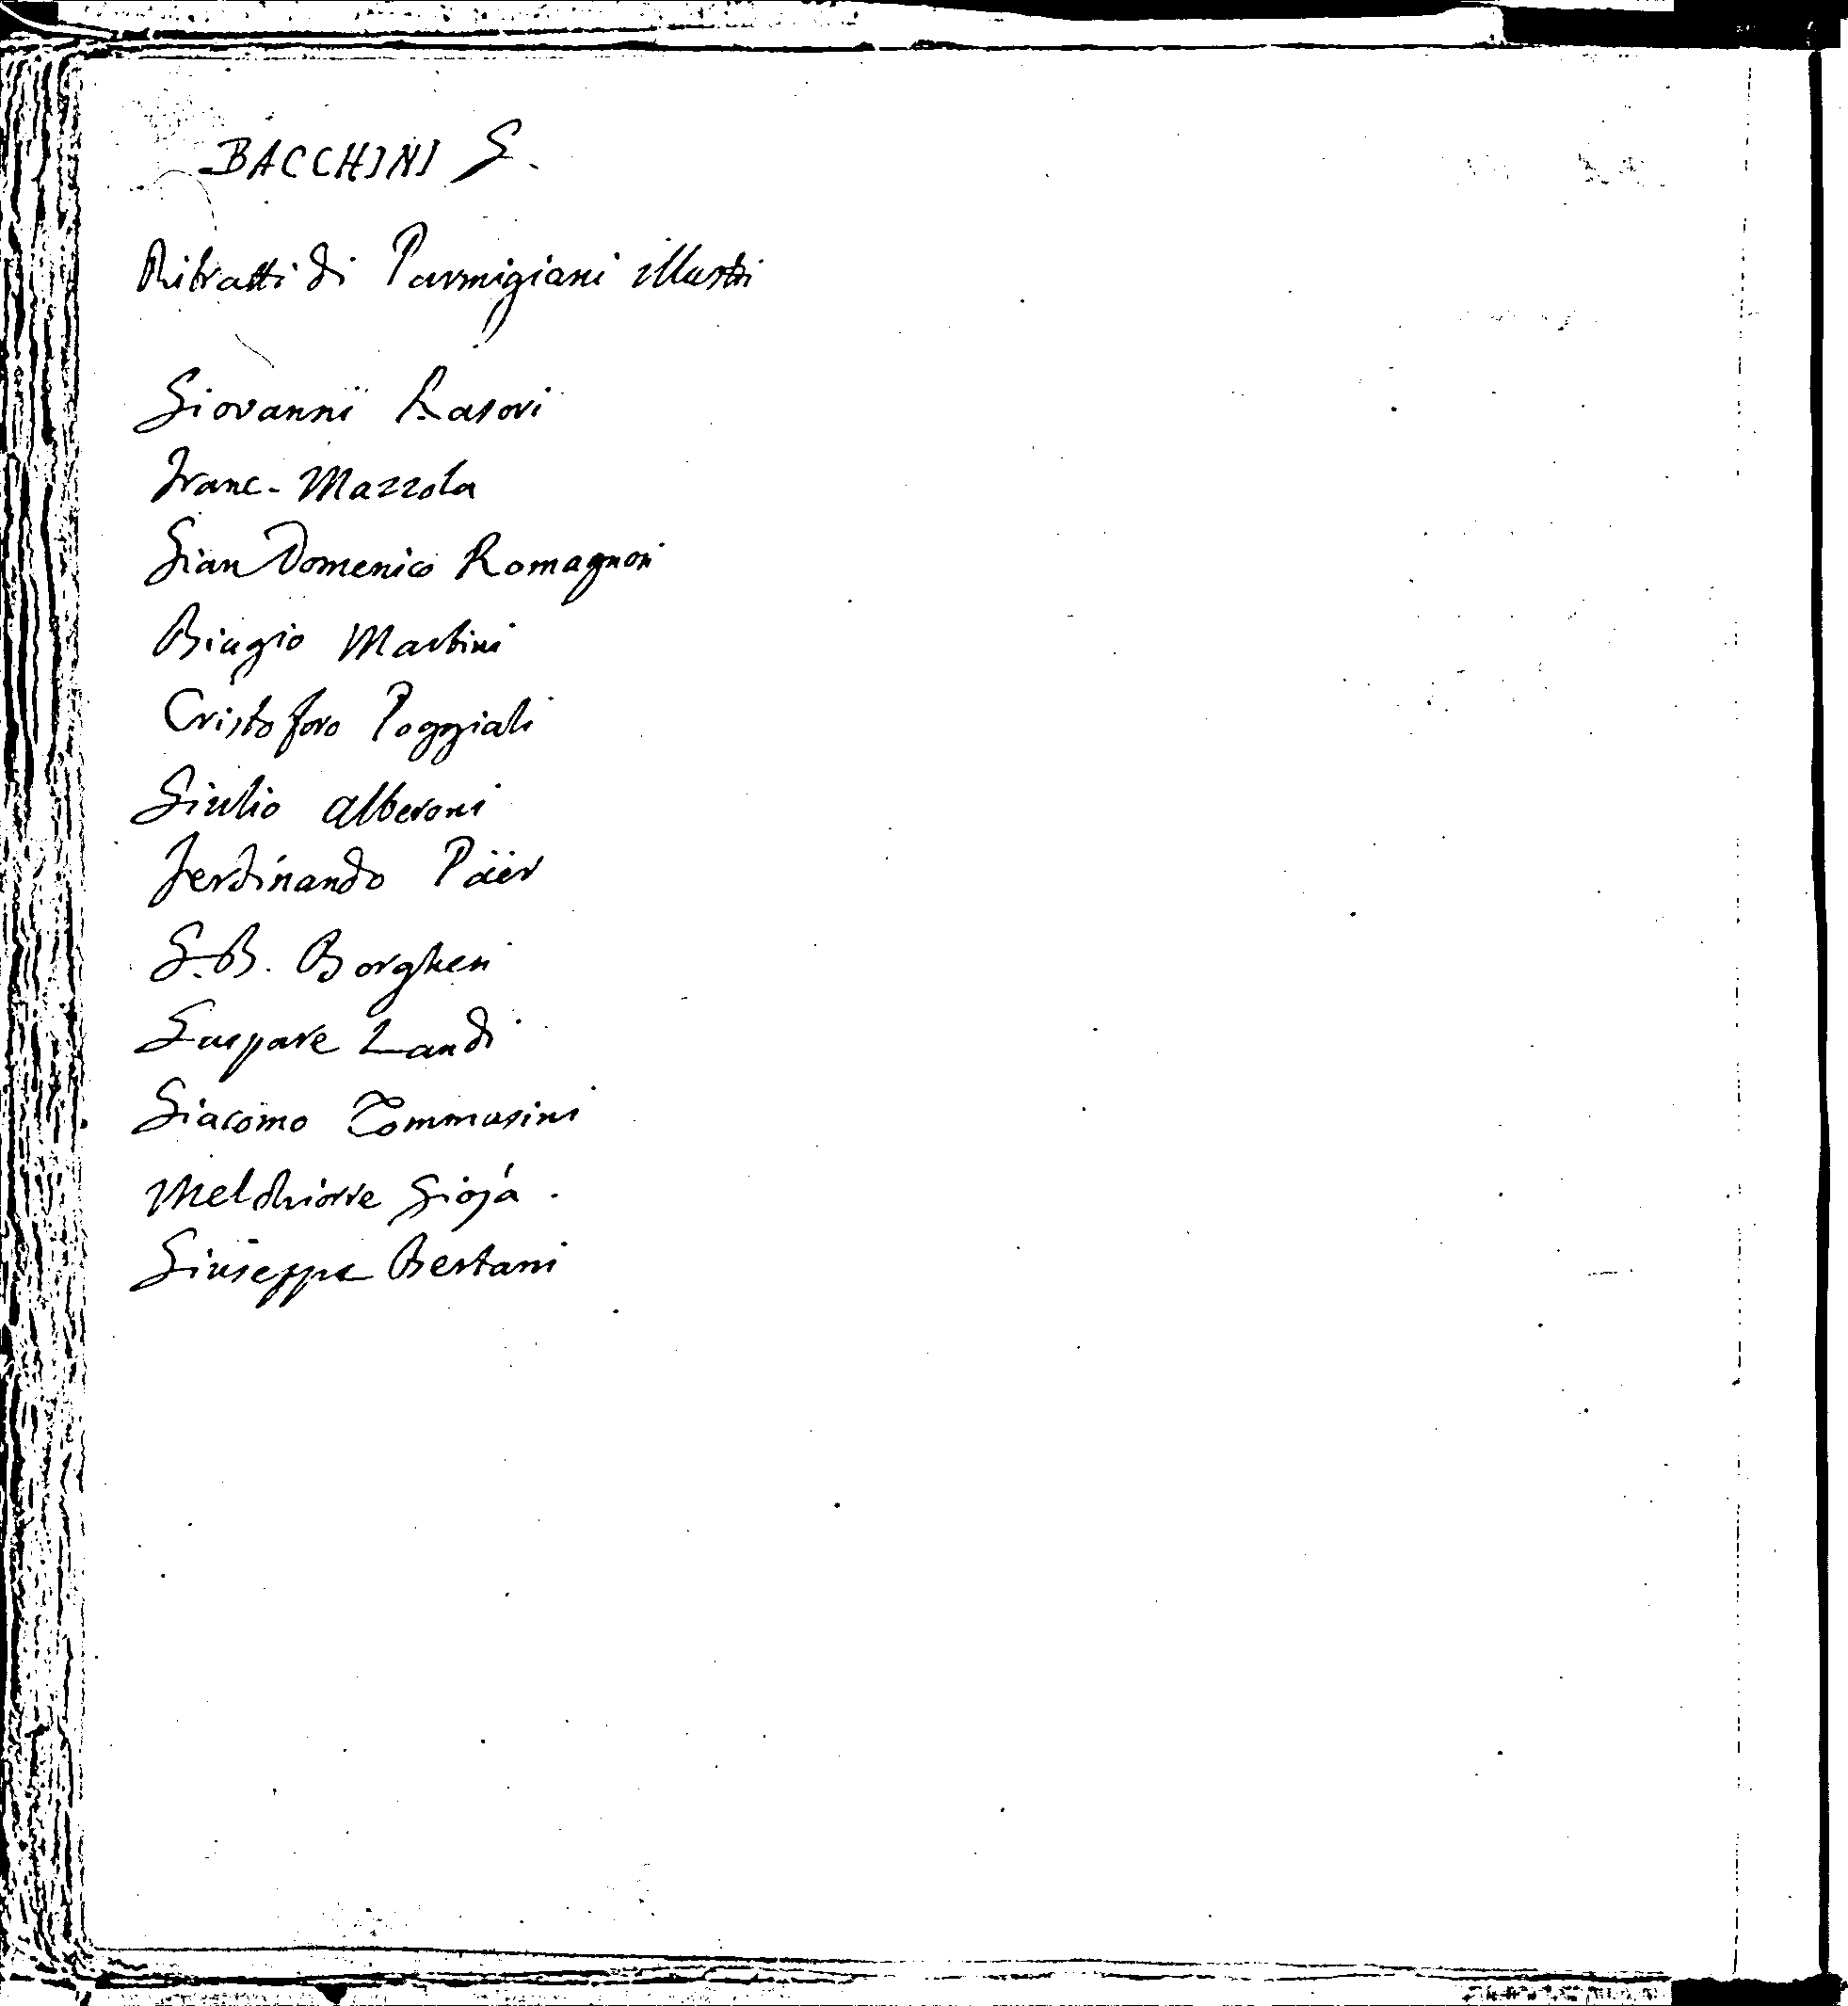 BACCHINI G.
Ritratti di Parmigiani illustri
Giovanni Rasori
Franc. Mazzola
Gian Domenico Romagnosi
Biagio Martini
Cristoforo Poggiali
Giulio Alberoni
Ferdinando Päer
G. B. Borghesi
Gaspare Landi
Giacomo Tommasini
Melchiorre Gioja.
Giuseppe Bertani